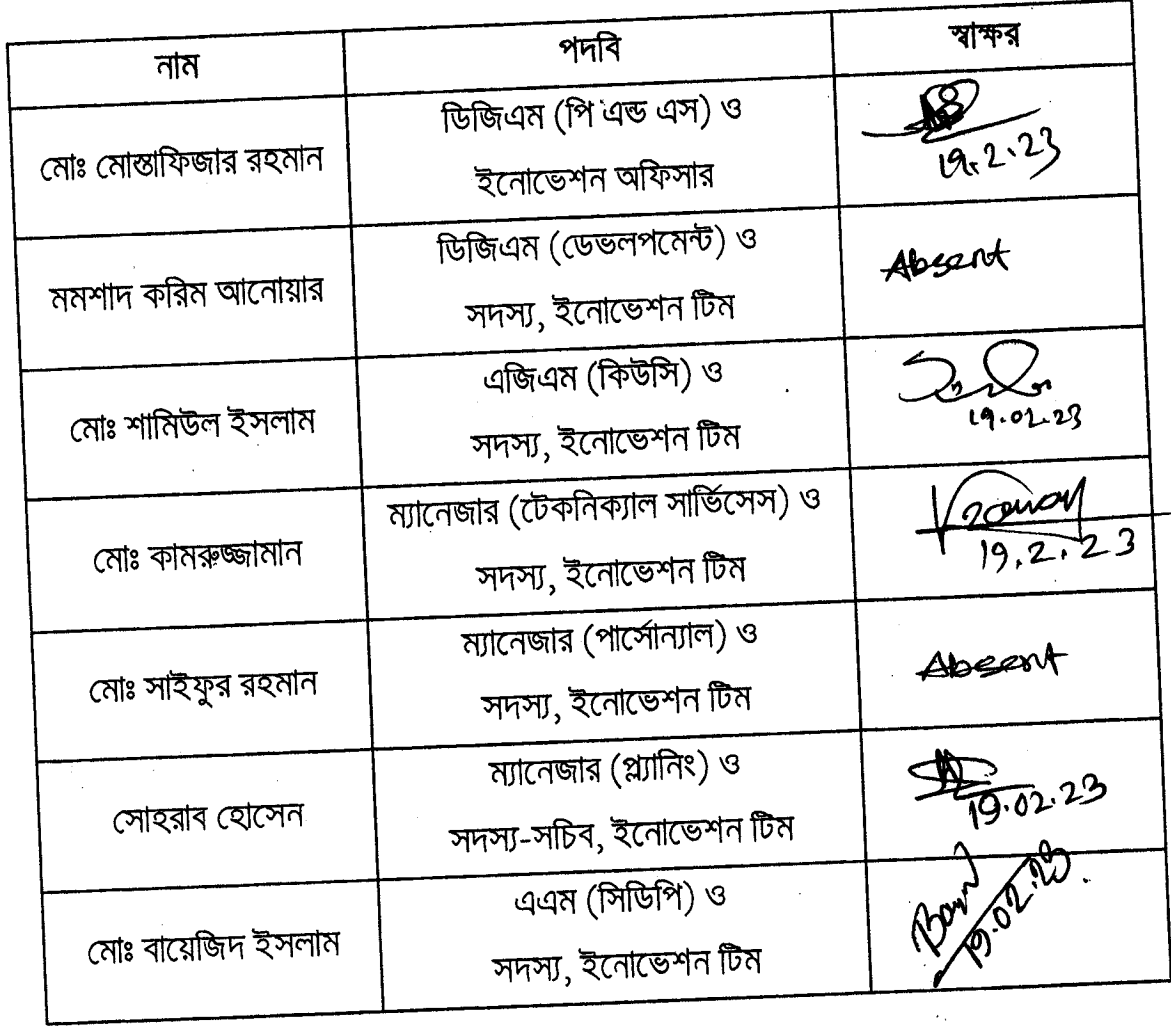 নাম পদবি স্বাক্ষর
মোঃ মোস্তাফিজার রহমান
ডিজিএম (পি এন্ড এস) ও
ইনোভেশন অফিসার
19.2.23
মমশাদ করিম আনোয়ার
ডিজিএম (ডেভলপমেন্ট) ও
সদস্য, ইনোভেশন টিম
Absent
মোঃ শামিউল ইসলাম
এজিএম (কিউসি) ও
সদস্য, ইনোভেশন টিম
19.02.23
মোঃ কামরুজ্জামান
ম্যানেজার (টেকনিক্যাল সার্ভিসেস) ও
সদস্য, ইনোভেশন টিম
19.2.23
মোঃ সাইফুর রহমান
ম্যানেজার (পার্সোন্যাল) ও
সদস্য, ইনোভেশন টিম
Absent
সোহরাব হোসেন
ম্যানেজার (প্ল্যানিং) ও
সদস্য-সচিব, ইনোভেশন টিম
19.02.23
মোঃ বায়েজিদ ইসলাম
এএম (সিডিপি) ও
সদস্য, ইনোভেশন টিম
19.02.23